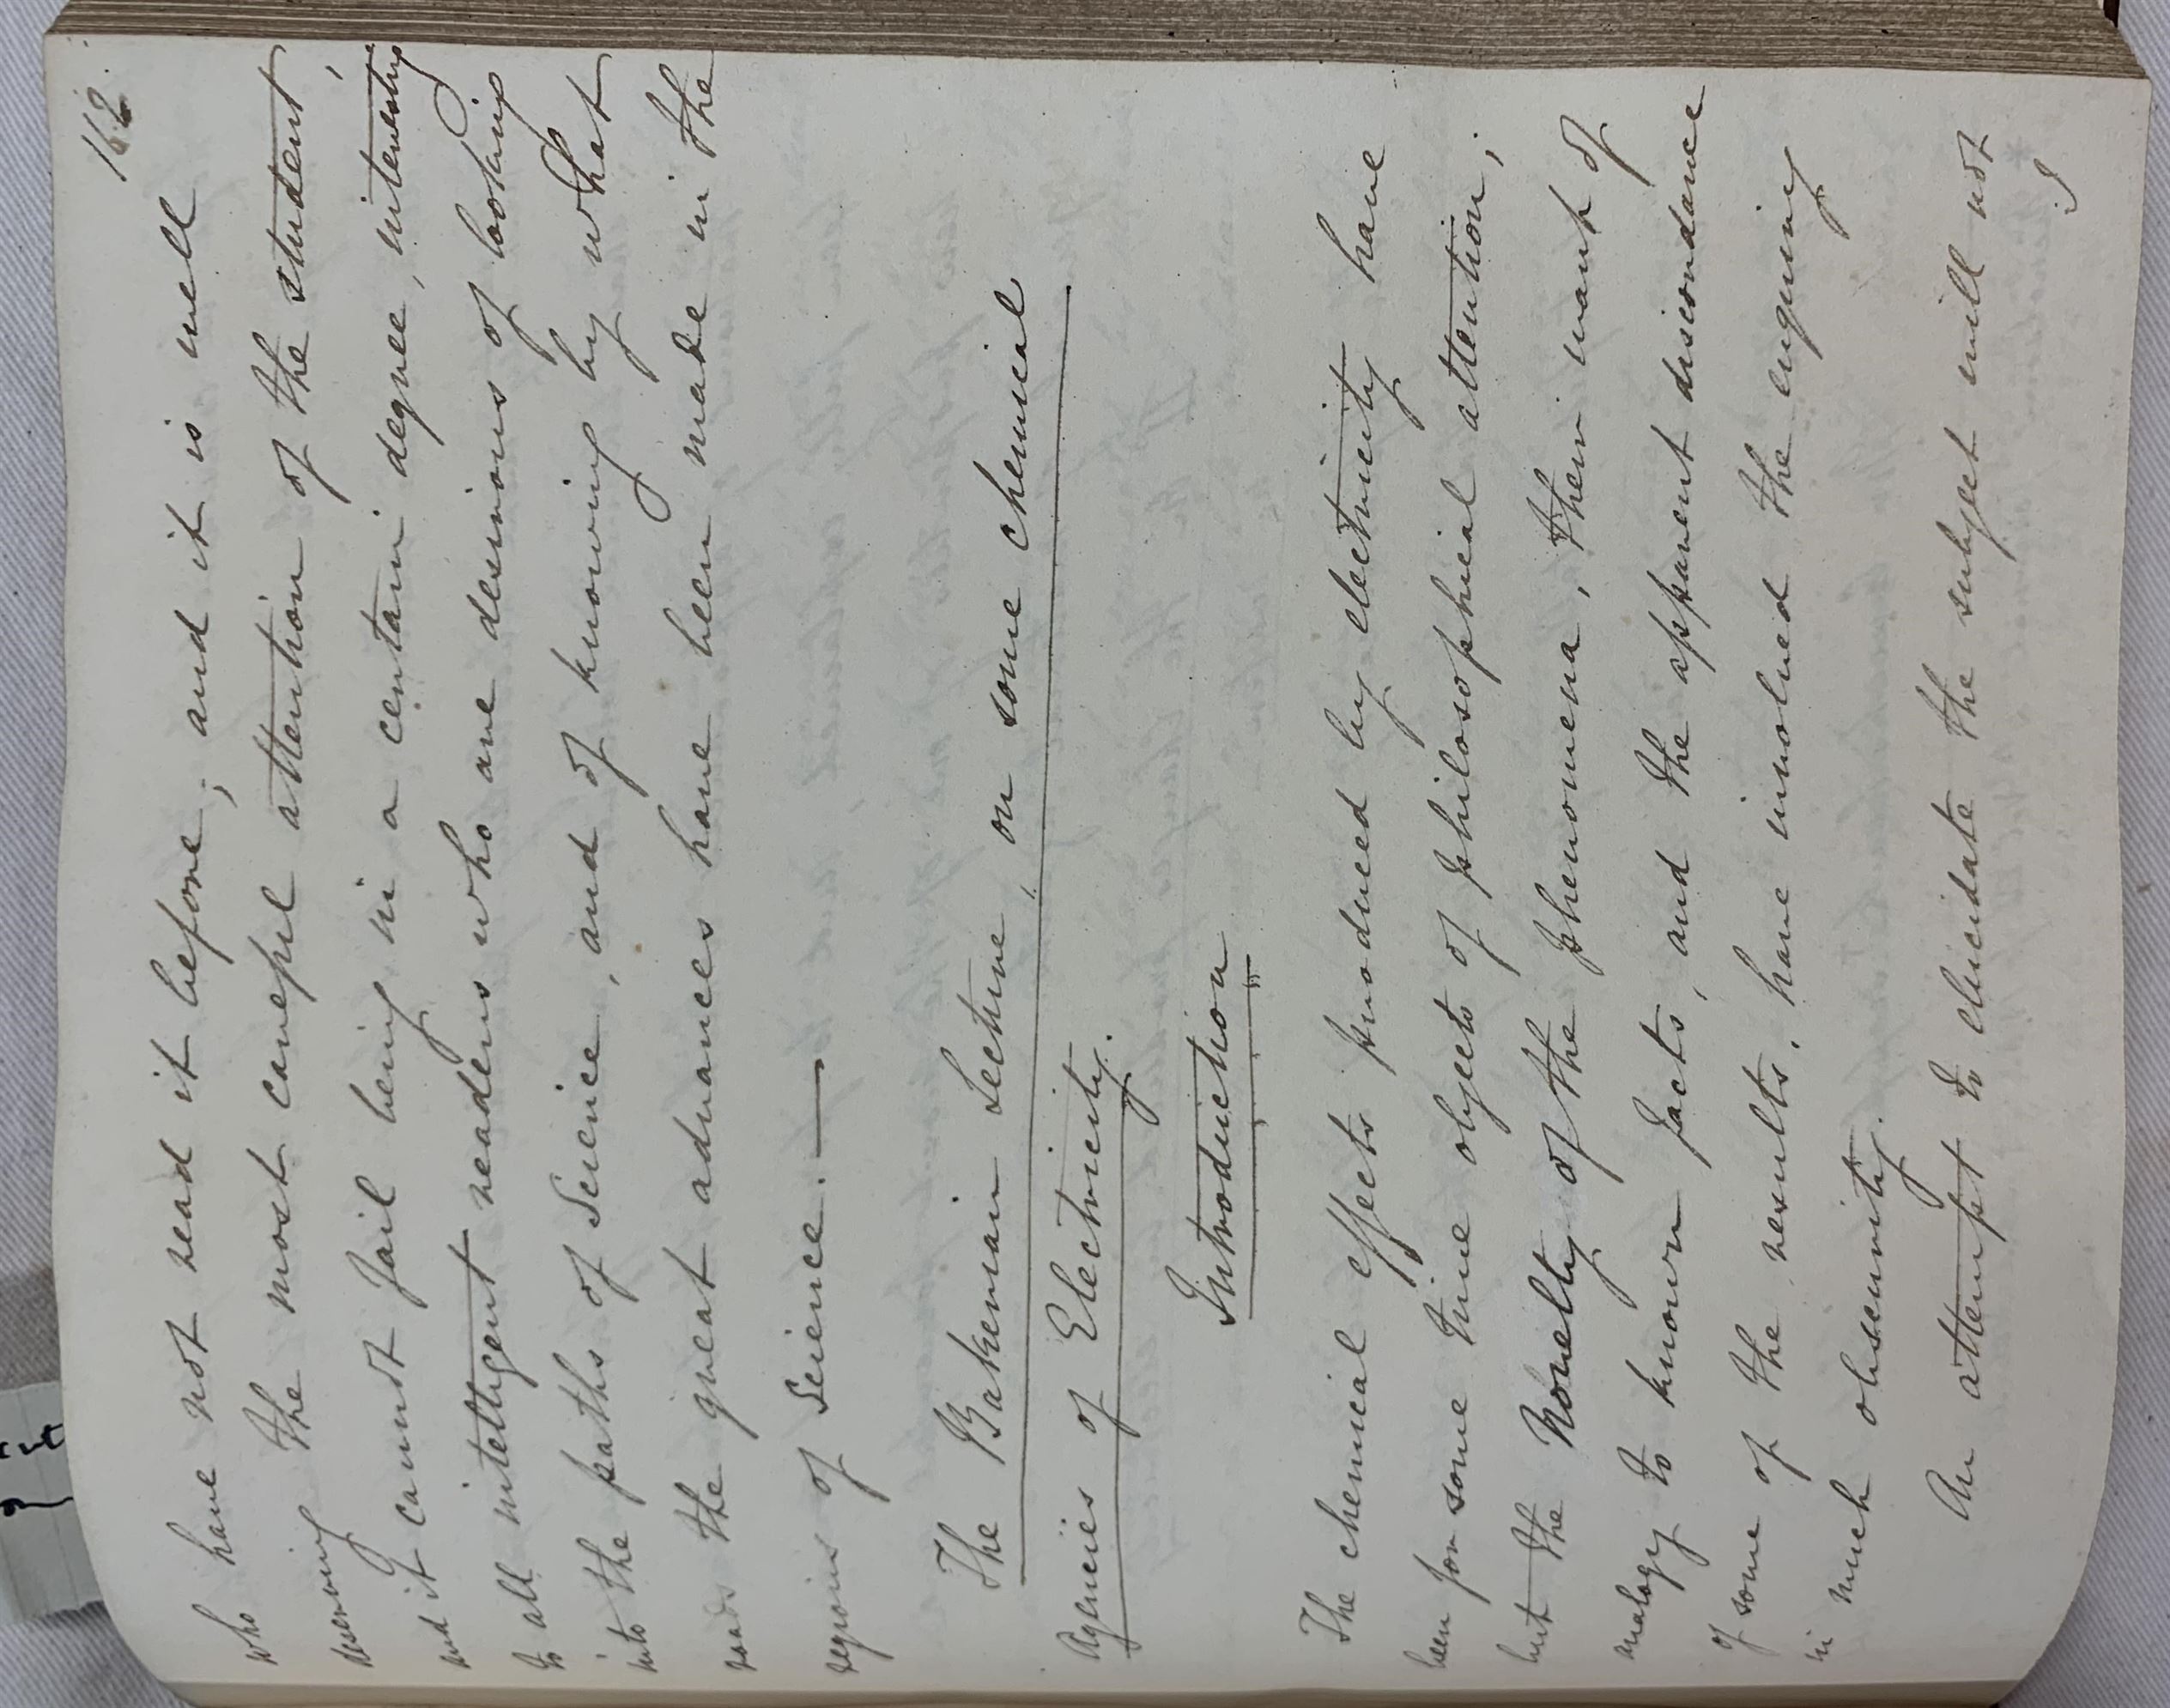 162.
who have not read it before; and it is well
deserving the most careful attention of the student,
and it cannot fail being in a certain degree, interesting
to all intelligent readers who are desirous of looking
into the paths of Science, and of knowing by what
roads the great advances have been made in the
regions of Science. —
The Bakerian Lecture, on some chemical
Agencies of Electricity.
Introduction
The chemical effects produced by electricity have
been for some time objects of philosophical attention;
but the Novelty of the phenomena, their want of
analogy to known facts, and the apparent discordance
of some of the results, have involved the enquiry
in much obscurity.
An attempt to elucidate the subject will not